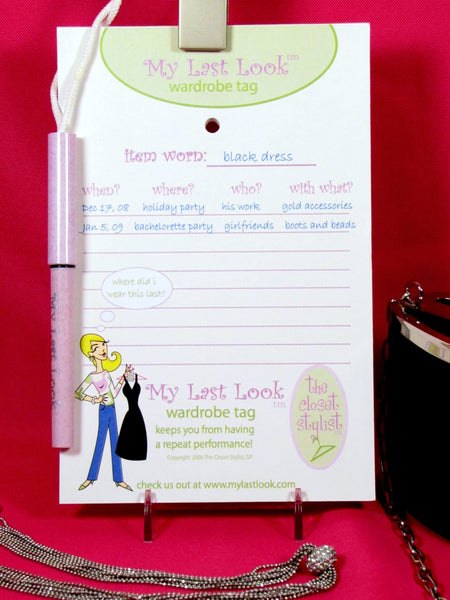 My Last Look™
wardrobe tag
item worn: black dress
when? where? who? with what?
Dec 17, 08 holiday party his work gold accessories
Jan 5, 09 bachelorette party girlfriends boots and beads
where did i
wear this last?
My Last Look™
wardrobe tag
keeps you from having
a repeat performance!
Copyright 2008 The Closet Stylist, GP
the
closet
stylist
check us out at www.mylastlook.com
My Last Look